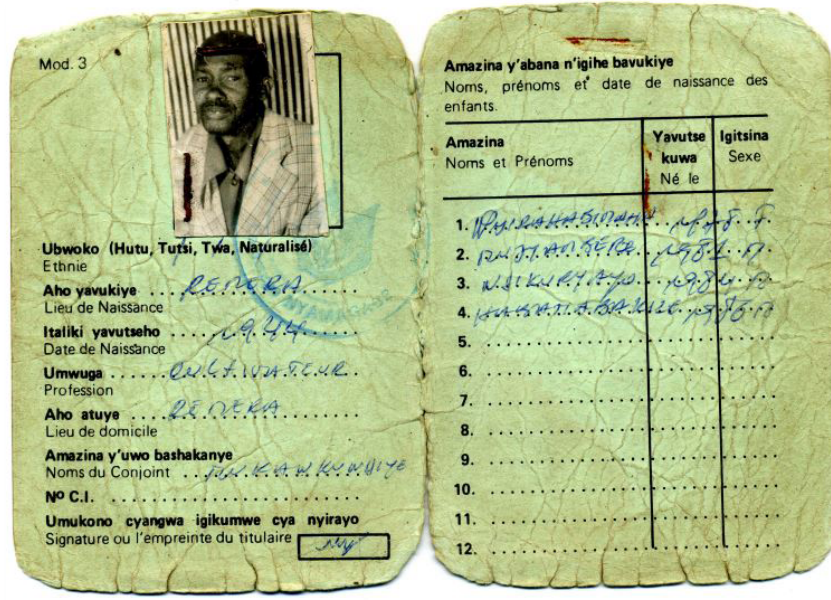 Mod. 3
Ubwoko (Hutu, Tutsi, Twa, Naturalisé)
Ethnie
Aho yavukiye REMERA
Lieu de Naissance
Italiki yavutseho 1944
Date de Naissance
Umwuga CULTIVATEUR
Profession
Aho atuye REMERA
Lieu de domicile
Amazina y'uwo bashakanye
Noms du Conjoint
Nº C.I.
Umukono cyangwa igikumwe cya nyirayo
Signature ou l'empreinte du titulaire
Amazina y'abana n'igihe bavukiye
Noms, prénoms et date de naissance des
enfants.
Amazina
Noms et Prénoms
Yavutse
kuwa
Né le
Igitsina
Sexe
1. 1978 F
2. 1981
3. 1984
4. 1986
5.
6.
7.
8.
9.
10.
11.
12.